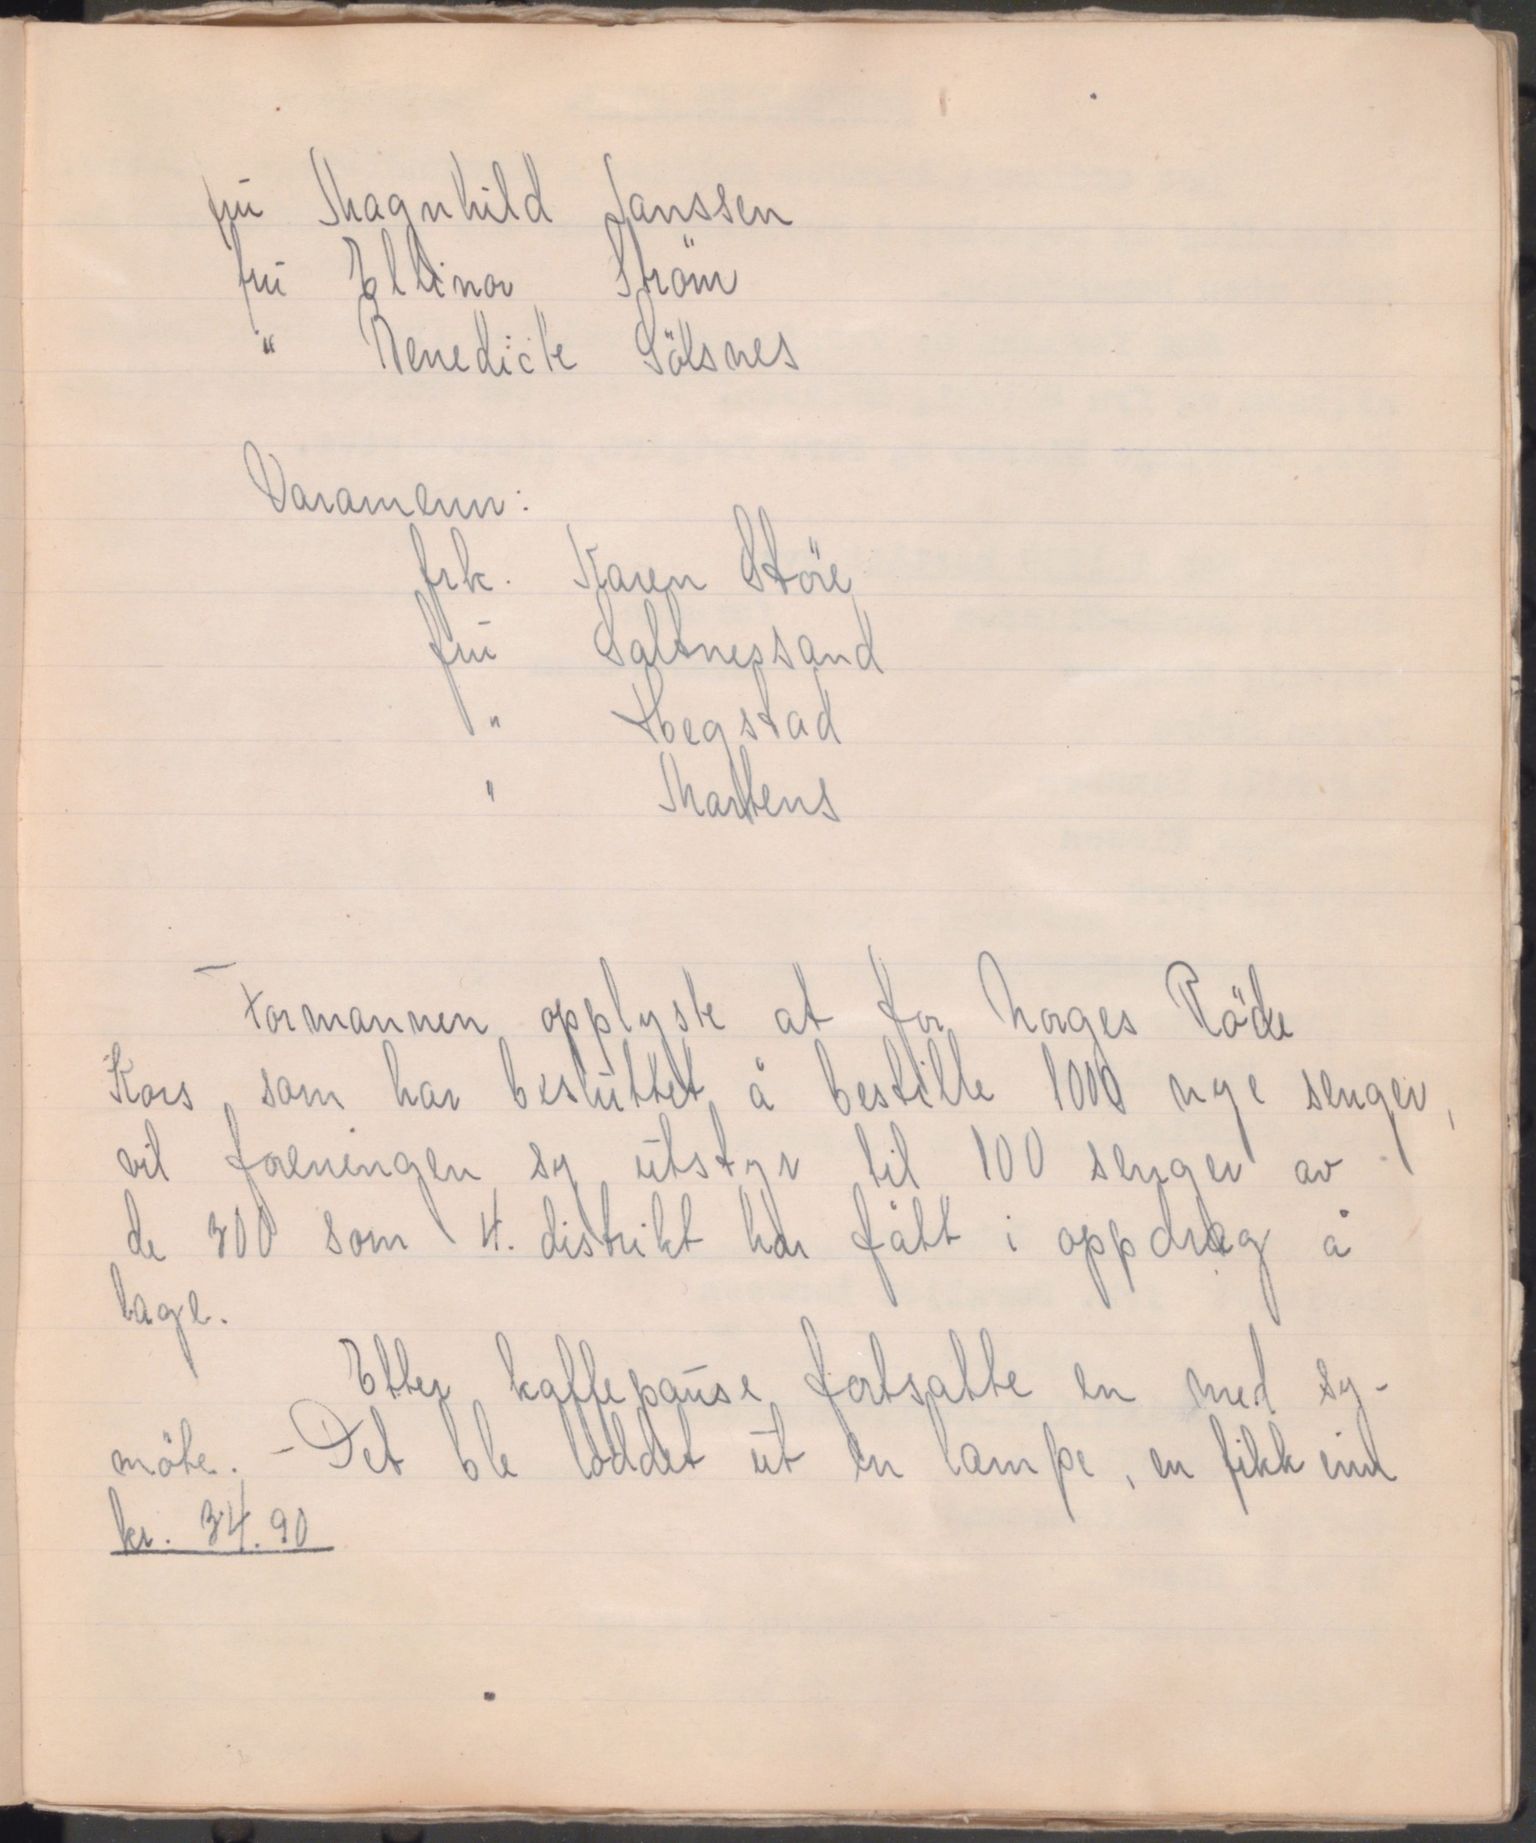 fru Magnhild Janssen
fru Ellinor Ström
" Benedicte Sölsnes
Varamenn:
frk. Karen Störe
fru Saltnessand
" Hegstad
" Martens
Formannen opplyste at for Norges Röde
Kors som har besluttet å bestille 1000 nye senger,
vil foreningen sy utstyr til 100 senger av
de 300 som 4. distrikt har fått i oppdrag å
lage.
Etter kaffepause fortsatte en med sy-
möte. - Det ble loddet ut en lampe, en fikk inn
kr. 34.90